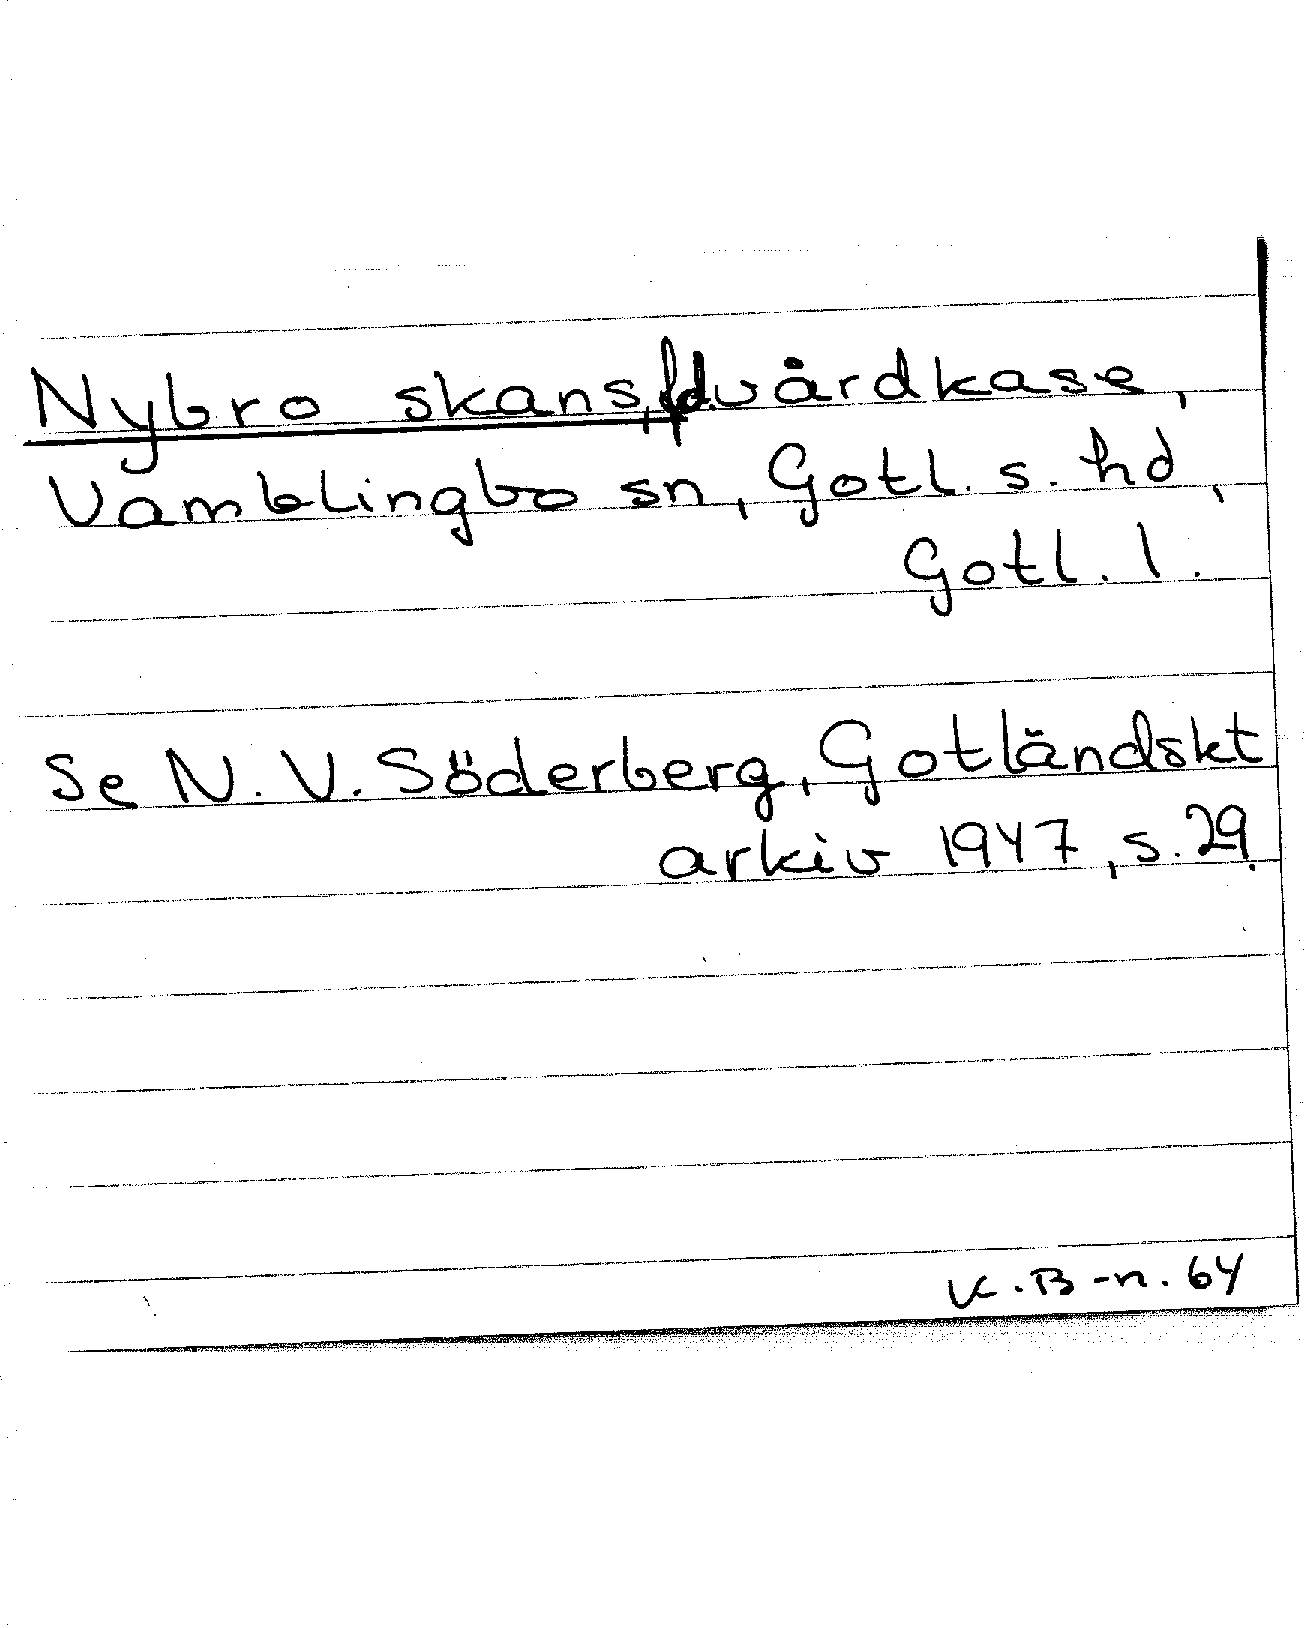 Nybro skans, f.d. vårdkase,
Vamblingbo sn, Gotl. s. hd,
Gotl. l.
Se N. V. Söderberg, Gotländskt
arkiv 1947, s. 29.
K. B-n. 64